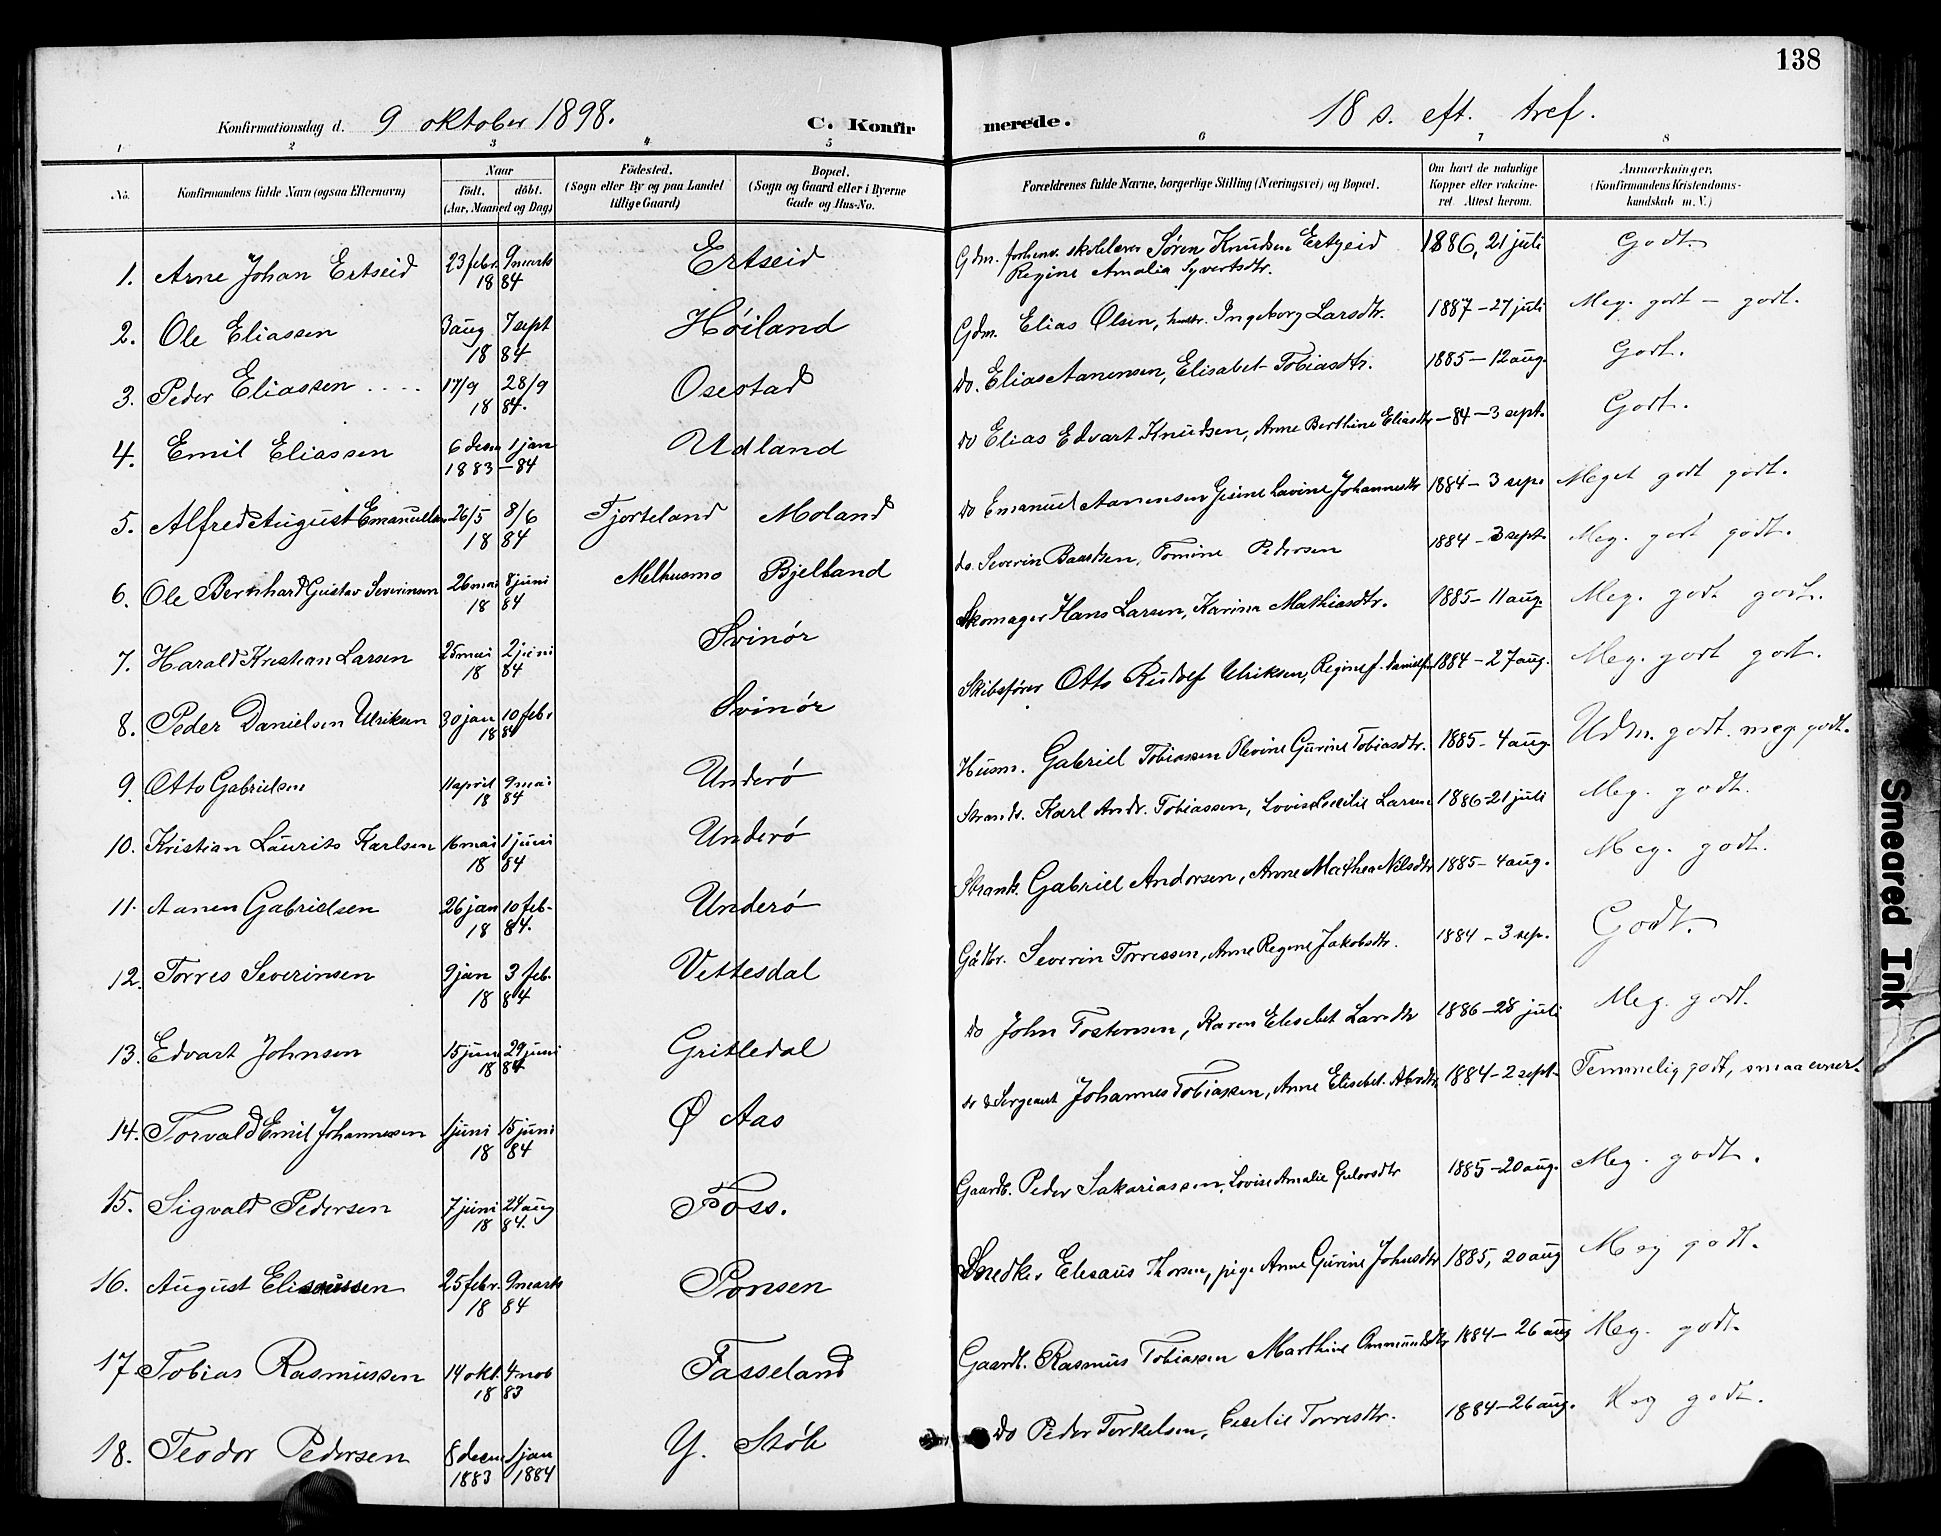 138
Konfirmationsdag d. 9 oktober 1898. C. Konfirmerede. 18 s. eft. tref.
1 2 3 4 5 6 7 8
No. Konfirmandens fulde Navn (ogsaa Efternavn) Naar födt. döbt. (Aar, Maaned og Dag) Födested. (Sogn eller By og paa Landet tillige Gaard) Bopæl. (Sogn og Gaard eller i Byerne Gade og Hus-No. Forældrenes fulde Navne, borgerlige Stilling (Næringsvei) og Bopæl. Om havt de naturlige Kopper eller vakcineret. Attest herom. Anmærkninger. (Konfirmandens Kristendomskundskab m. V.)
1. Arne Johan Ertseid 23 febr. 9 marts 1884 Ertseid Gdm. forhenv. skolelærer Søren Knudsen Ertseid Regine Amalia Syvertsdtr. 1886, 21 juli Godt.
2. Ole Eliassen 3 aug 7 sept 1884 Høiland Gdm. Elias Olsen, hustr. Ingeborg Larsdtr. 1887 - 27 juli Meg. godt - godt.
3. Peder Eliassen .... 17/9 28/9 1884. Osestad Do. Elias Aanensen, Elisabet Tobiasdtr. 1885 - 12 aug. Godt.
4. Emil Eliassen 6 decem 1 jan 1883 - 84 Udland Do Elias Edvart Knudsen, Anne Berthine Eliasdtr - 84 - 3 sept. Godt.
5. Alfred August Emanuelsen 26/5 8/6 1884 Fjorteland Moland Do Emanuel Aanensen Gesine Lavine Johannesdtr 1884 - 3 sept Meget godt godt.
6. Ole Bernhard Gustav Severinsen 26 mai 8 juni 1884 Melhusmo Bjelland do. Severin Baardsen, Tomine Pedersen 1884 - 3 sept. Meg. godt godt.
7. Harald Kristian Larsen 25 mai 2 juni 1884 Svinör Skomager Hans Larsen, Karina Mathiasdtr. 1885 - 11 aug. Meg. godt godt.
8. Peder Danielsen Ulriksen 30 jan 10 febr 1884 Svinör Skibsfører Otto Rudolf Ulriksen, Regine f. Danielsen 1884 - 27 aug. Meg. godt godt.
9. Otto Gabrielsen 11 april 9 mai 1884 Underö Husm. Gabriel Tobiassen Olevine Gurine Tobiasdtr. 1885 - 4 aug. Udm. godt. meg. godt.
10. Kristian Laurits Karlsen 16 mai 1 juni 1884 Underö Strands. Karl Andr. Tobiassen, Lovise Cecilie Larsen 1886 - 21 juli Meg. godt.
11. Aanen Gabrielsen 26 jan 10 feb. 1884. Underö Strands. Gabriel Andersen, Anne Mathea Nilsdtr 1885 - 4 aug. Meg. godt.
12. Torres Severinsen 9 jan 3 feb. 1884 Vettesdal Gåbr. Severin Torressen, Anne Regine Jakobsdtr. 1884 - 3 sep. Godt.
13. Edvart Johnsen 15 juni 29 juni 1884 Gritledal Do John Tostensen, Karen Elisebet Larsdtr 1886 - 28 juli Meg. godt.
14. Torvald Emil Johannessen 1 juni 15 juni 1884 Ø Aas do & Sergeant Johannes Tobiassen, Anne Elisebet 1884 - 2 sept. Temmelig godt, smaa evner.
15. Sigvald Pedersen 7 juni 24 aug 1884. Foss. Gaardb. Peder Sakariassen, Lovise Amalie Gulovsdtr 1885 - 20 aug. Meg. godt.
16. August Elisæussen 25 febr. 9 marts 1884 Ponsen Snedker Elesæus Thorsen, pige Anne Gurine Johnsdtr 1885, 20 aug Meg godt.
17. Tobias Rasmussen 14 okt. 4 nob 1883 Fasseland Gaardb. Rasmus Tobiassen Marthine Ommundsdtr 1884 - 26 aug Meg. godt.
18. Teodor Pedersen 8 decem 1 jan 1883 1884 Y. Stöb Do Peder Terkelsen, Cecilie Torresdtr. 1884 - 26 aug. Meg godt.
Smeared Ink